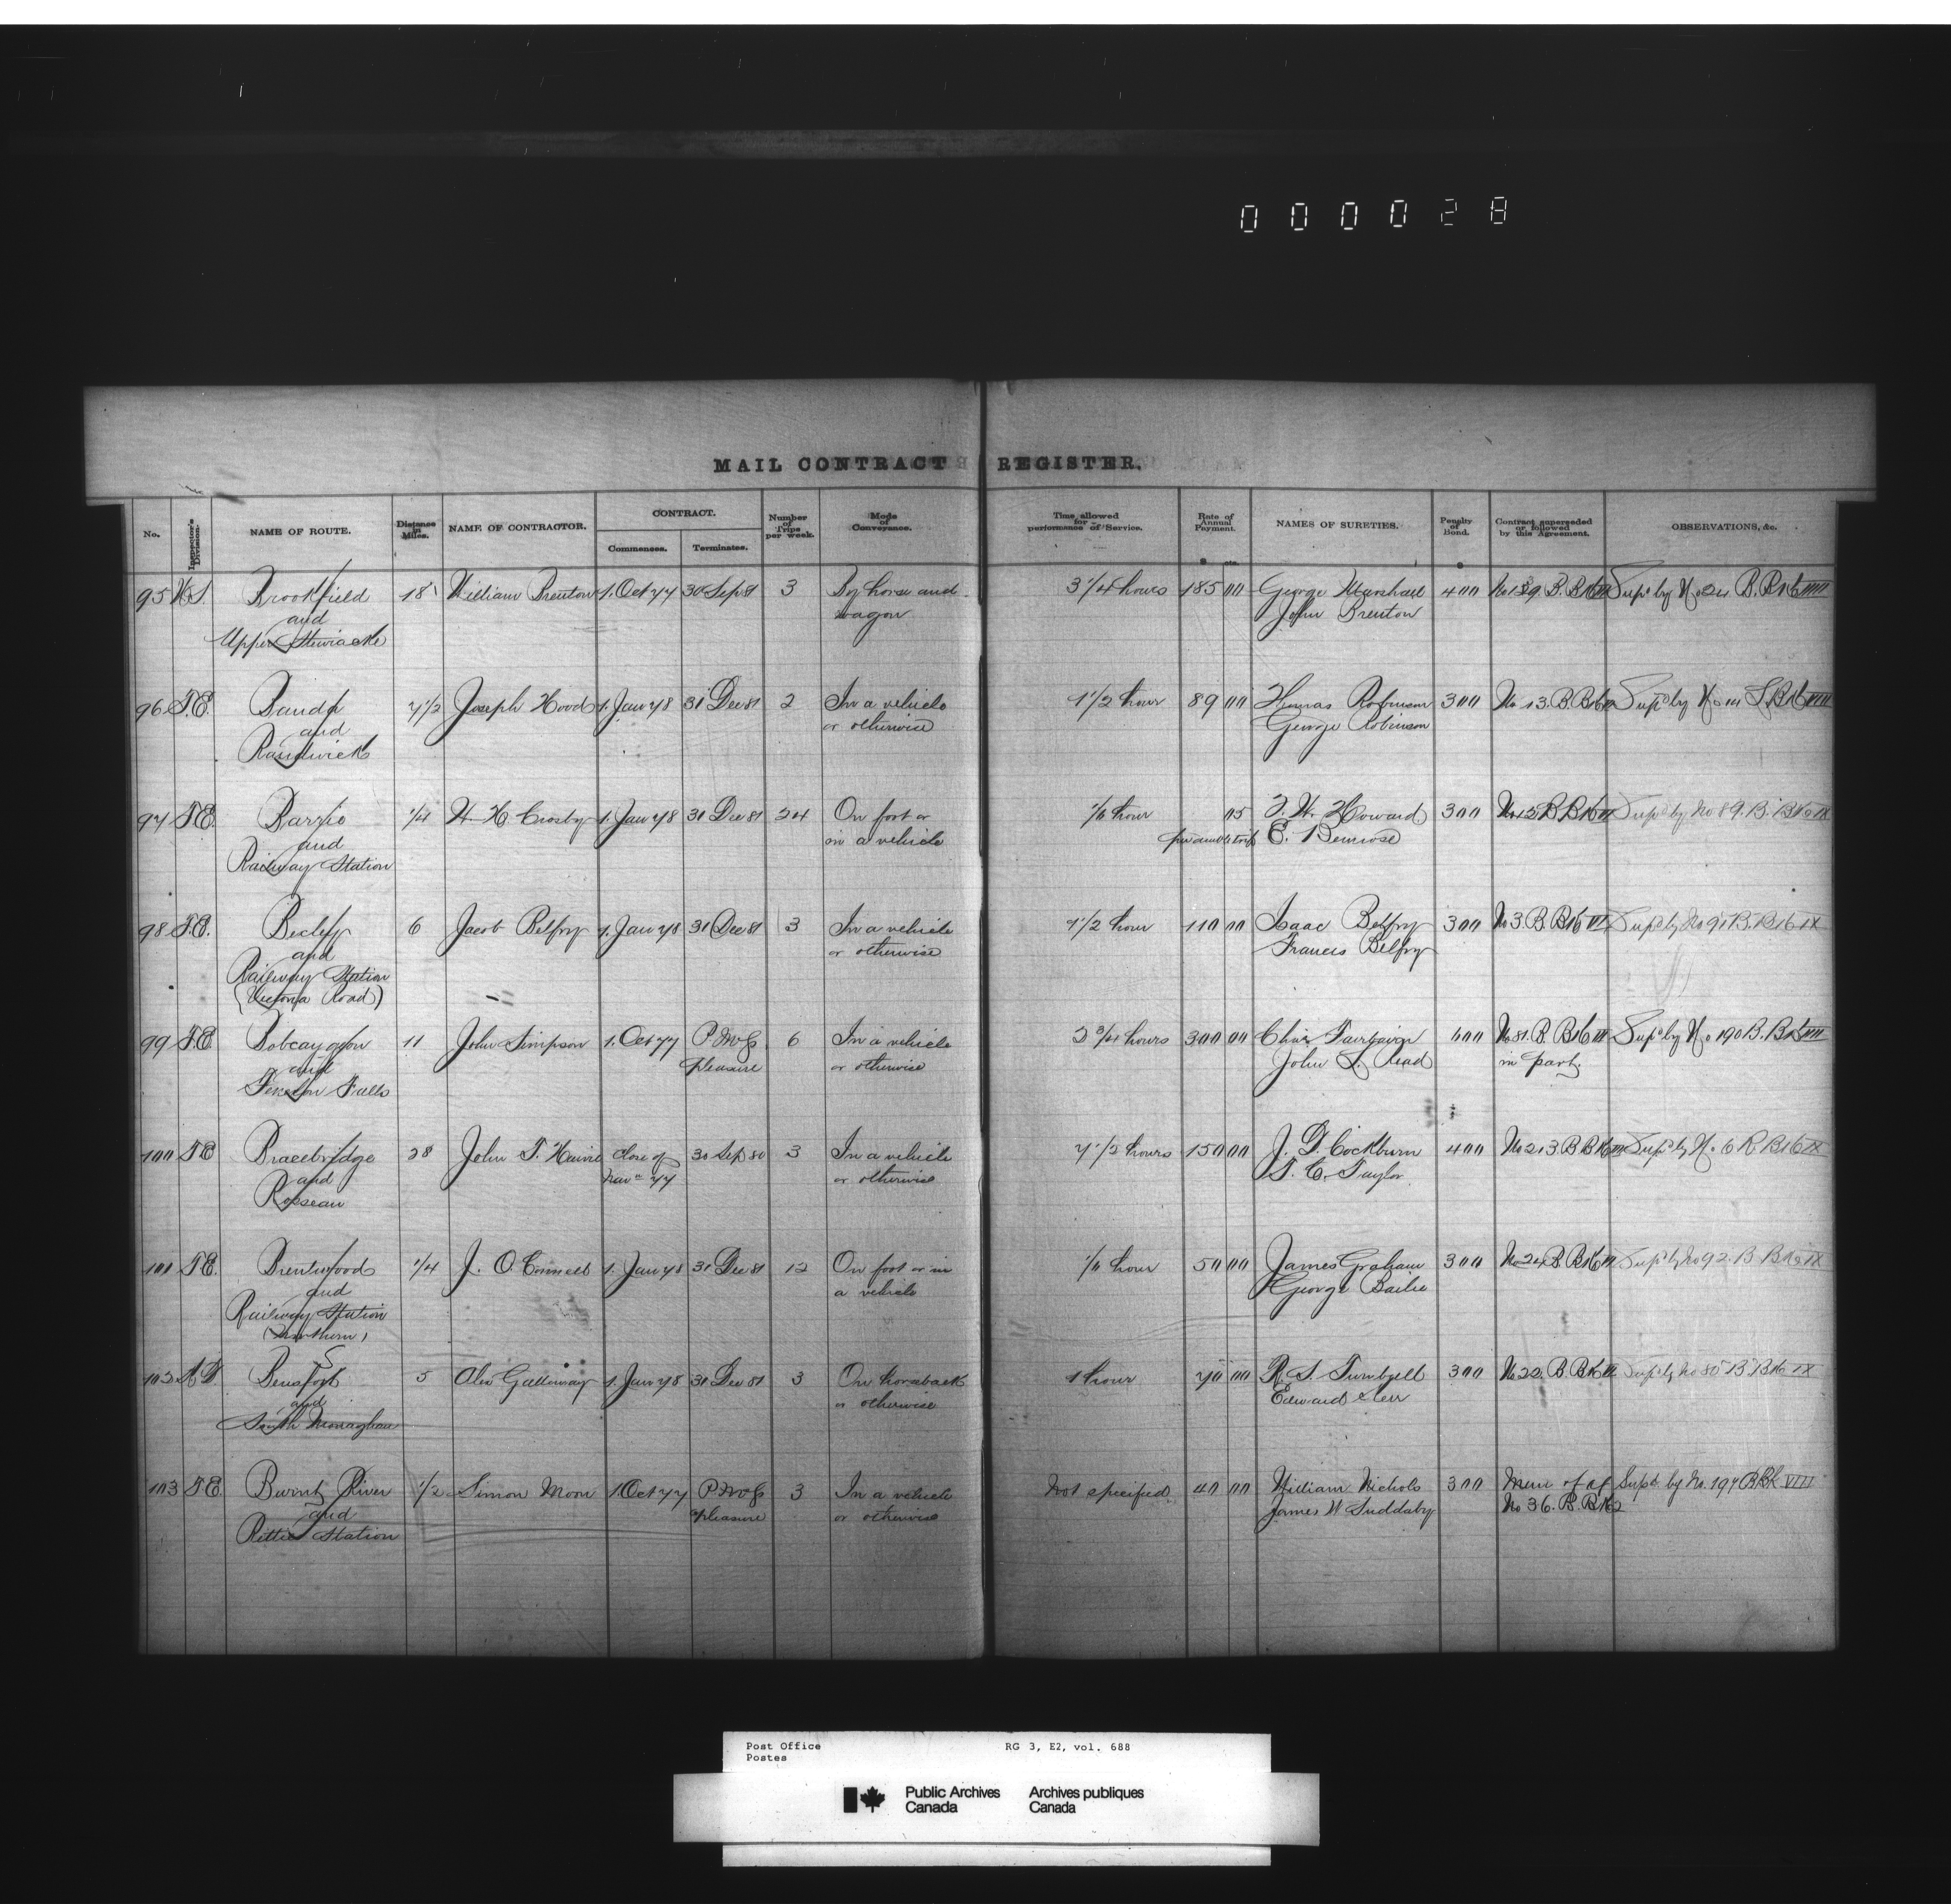 000028
MAIL CONTRACT REGISTER.
No. Inspector's Division. NAME OF ROUTE. Distance in Miles. NAME OF CONTRACTOR. CONTRACT. Commences. Terminates. Number of Trips per week. Mode of Conveyance. Time allowed for performance of Service. Rate of Annual Payment. NAMES OF SURETIES. Penalty of Bond. Contract superseded or followed by this Agreement. OBSERVATIONS, &c.
95 N.S. Brookfield 18 William Brenton 1. Oct 77 30 Sep 81 3 By horse and 3 1/4 hours 185 00 George Marshall 400 B. Bk Sup'd by No 24 B. Bk VIII
and wagon John Brenton
Upper Stewiacke
96 T.E. Banda 7 1/2 Joseph Hood 1. Jan 78 31 Dec 81 2 In a vehicle 1 1/2 hour 89 00 Thomas Robinson 300 No 13. B. Bk Sup'd by No Bk VIII
and or otherwise George Robinson
Randwick
97 T.E. Barrie 1/4 H. H. Crosby 1. Jan 78 31 Dec 81 24 On foot or 1/6 hour 05 Howard 300 No 12 B Bk Sup'd by No 89. B. Bk IX
and in a vehicle per double trip E. Bemrose
Railway Station
98 T.E. Bexley 6 Jacob Belfry 1. Jan 78 31 Dec 81 3 In a vehicle 1 1/2 hour 110 00 Isaac Belfry 300 No 3. B. Bk Sup'd by No 91 B. Bk IX
and or otherwise Francis Belfry
Railway Station
(Victoria Road)
99 T.E. Bobcaygeon 11 John Simpson 1. Oct 77 P M G's 6 In a vehicle 2 3/4 hours 300 00 Chas Fairbairn 600 No 81. B. Bk Sup'd by No 190 B. Bk VIII
and pleasure or otherwise John L. Read in part
Fenelon Falls
100 T.E. Bracebridge 28 John T. close of 30 Sep 80 3 In a vehicle 7 1/2 hours 150 00 J. D. Cockburn 400 No 213. B Bk Sup'd by No 6 R Bk IX
and Nav'n 77 or otherwise T. C. Taylor
Rosseau
101 T.E. Brentwood 1/4 J. O'Connell 1. Jan 78 31 Dec 81 12 On foot or in 1/6 hour 50 00 James Graham 300 B. Bk Sup'd by No 92. B. Bk IX
and a vehicle George Bailie
Railway Station
(Northern)
102 Bensfort 5 Alex Galloway 1. Jan 78 31 Dec 81 3 On horseback 1 hour 70 00 R. S. Turnbull 300 No 22. B. Bk Sup'd by No 85 B. Bk IX
and or otherwise Edward Kerr
South Monaghan
103 T.E. Burnt River 1/2 Simon Moon 1 Oct 77 P M G's 3 In a vehicle Not specified 40 00 William Nichols 300 Mem of af Sup'd by No. 197 B Bk VIII
and pleasure or otherwise James W Suddaby No 36. B. Bk 2
Rettie Station
Post Office RG 3, E2, vol. 688
Postes
Public Archives Archives publiques
Canada Canada